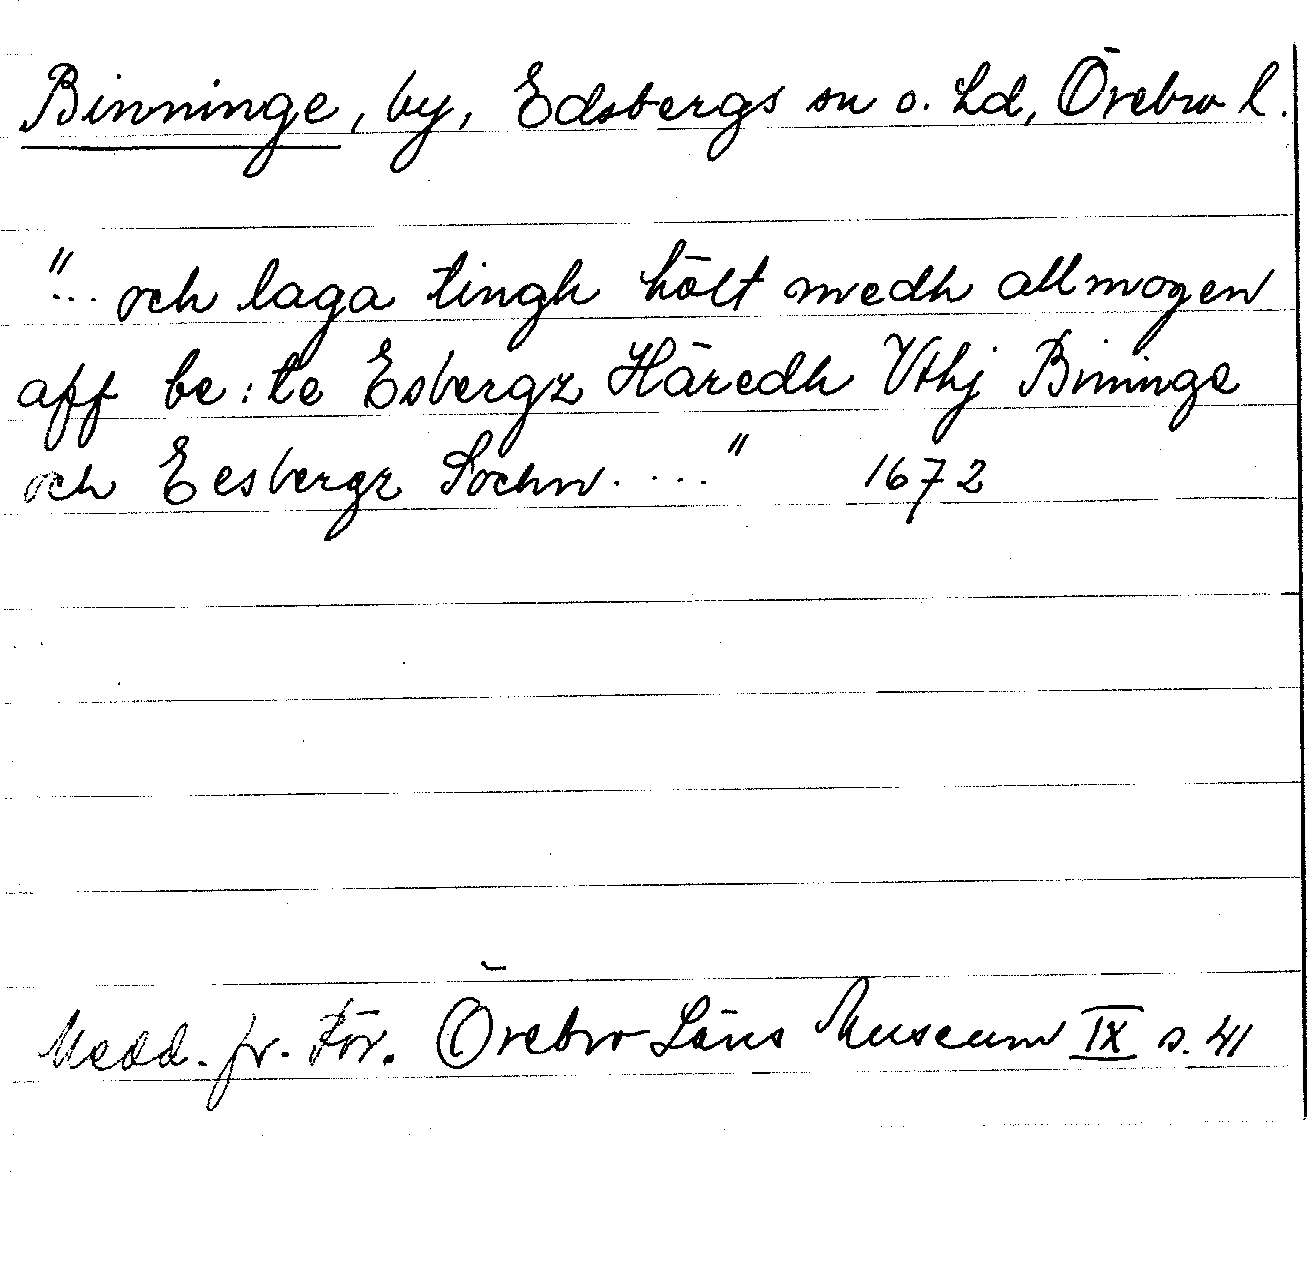 Binninge, by, Edsbergs sn o. hd, Örebro l.
"... och laga tingh hölt medh allmogen
aff be:te Esbergz Häredh Vthj Bininge
och Eesbergz Sochn ...." 1672
Medd. fr. För. Örebro Läns Museum IX s. 41